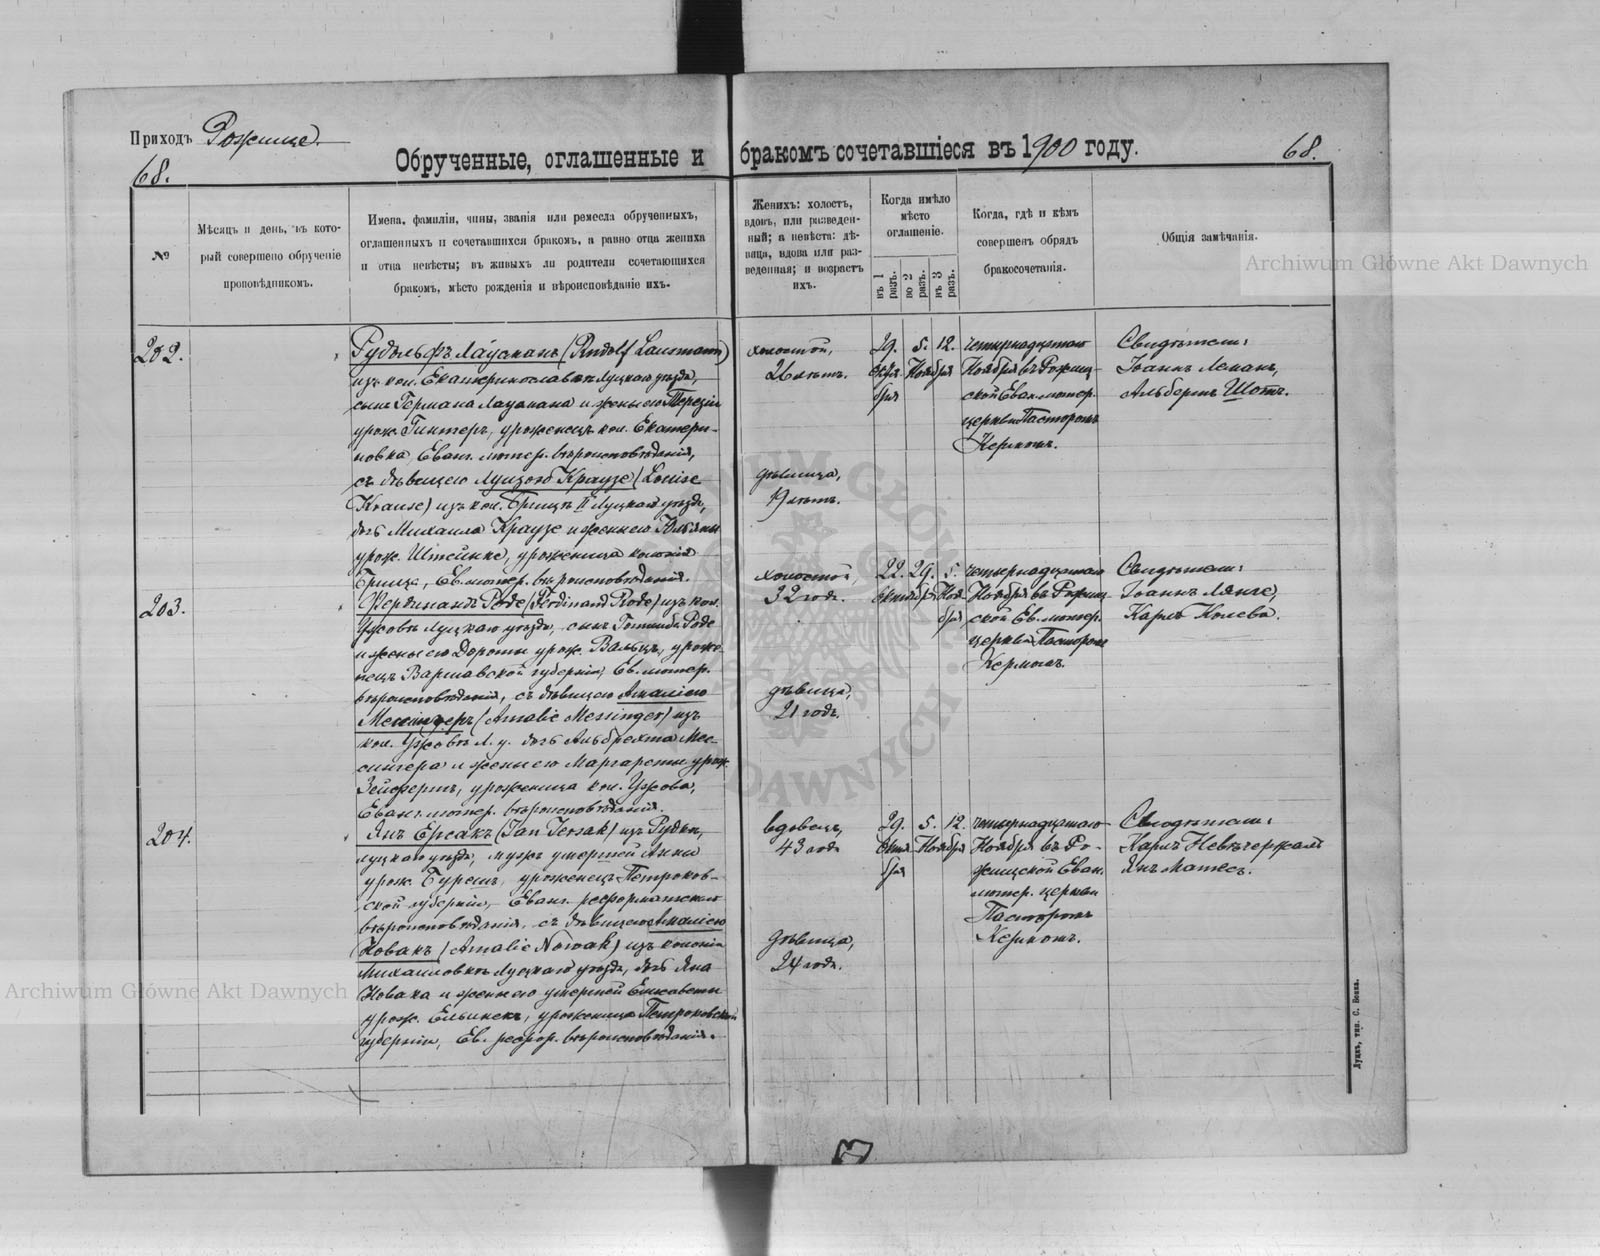 Приходъ Рожище.
68.
Обрученные, оглашенные и бракомъ сочетавшіеся въ 1900 году.
68.
№
Мѣсяцъ и день, въ кото-
рый совершено обрученіе
проповѣдникомъ.
Имена, фамиліи, чины, званія или ремесла обрученныхъ,
оглашенныхъ и сочетавшихся бракомъ, а равно отца жениха
и отца невѣсты; въ живыхъ ли родители сочетающихся
бракомъ, мѣсто рожденія и вѣроисповѣданіе ихъ.
Женихъ: холостъ,
вдовъ, или разведен-
ный; а невѣста: дѣ-
вица, вдова или раз-
веденная; и возрастъ
ихъ.
Когда имѣло
мѣсто
оглашеніе.
въ 1
разъ.
во 2
разъ.
въ 3
разъ.
Когда, гдѣ и кѣмъ
совершенъ обрядъ
бракосочетанія.
Общія замѣчанія.
202.
Рудольфъ Лаусманъ (Rudolf Lausmann)
изъ кол. Екатеринославъ Луцкаго уѣзда,
сынъ Германа Лаусмана и жены его Терезіи
урож. Гинтеръ, уроженецъ кол. Екатери-
новка, Еван. лютер. вѣроисповѣданія,
съ дѣвицею Луизою Краузе (Louise
Krause) изъ кол. Брищъ II Луцкаго уѣзда,
дочь Михаила Краузе и жены его Юльяны
урож. Штейнке, уроженица колоніи
Брища, Ев. лютер. вѣроисповѣданія.
холостой,
26 лѣтъ.
дѣвица,
19 лѣтъ.
29. 5. 12.
Октя- Ноября
бря
четырнадцатаго
Ноября въ Рожищ-
ской Еван. лютер.
церкви Пасторомъ
Керномъ.
Свидѣтели:
Іоаннъ Леманъ,
Альбертъ Шотъ.
203.
Фердинандъ Роде (Ferdinand Rode) изъ кол.
Ужовъ Луцкаго уѣзда, сынъ Готлиба Роде
и жены его Дороты урож. Вальцъ, уроже-
нецъ Варшавской губерніи, Ев. лютер.
вѣроисповѣданія, съ дѣвицею Амаліею
Месингеръ (Amalie Messinger) изъ
кол. Ужовъ Л. у. дочь Альбрехта Мес-
сингера и жены его Маргареты урож.
Зейфертъ, уроженица кол. Ужова,
Еван. лютер. вѣроисповѣданія.
холостой,
32 год.
дѣвица,
21 годъ.
22. 29. 5.
Октября Ноя-
бря
четырнадцатаго
Ноября въ Рожищ-
ской Ев. лютер.
церкви Пасторомъ
Керномъ.
Свидѣтели:
Іоаннъ Лянге,
Карлъ Колева.
204.
Янъ Ерсакъ (Jan Jersak) изъ Рудки,
Луцкаго уѣзда, мужъ умершей Анны
урож. Бурешъ, уроженецъ Петроков-
ской губерніи, Еван. реформатскаго
вѣроисповѣданія, съ дѣвицею Амаліею
Новакъ (Amalie Nowak) изъ колоніи
Михайловки Луцкаго уѣзда, дочь Яна
Новака и жены его умершей Елисаветы
урож. Ельинекъ, уроженица Петроковской
губерніи, Ев. рефор. вѣроисповѣданія.
вдовецъ,
43 года
дѣвица,
24 года.
29. 5. 12.
Октя- Ноября
бря
четырнадцатаго
Ноября въ Ро-
жищской Еван.
лютер. церкви
Пасторомъ
Керномъ.
Свидѣтели:
Карлъ Невечержалъ
Янъ Матесъ.
Луцкъ, тип. С. Бенка.
Archiwum Główne Akt Dawnych
Archiwum Główne Akt Dawnych